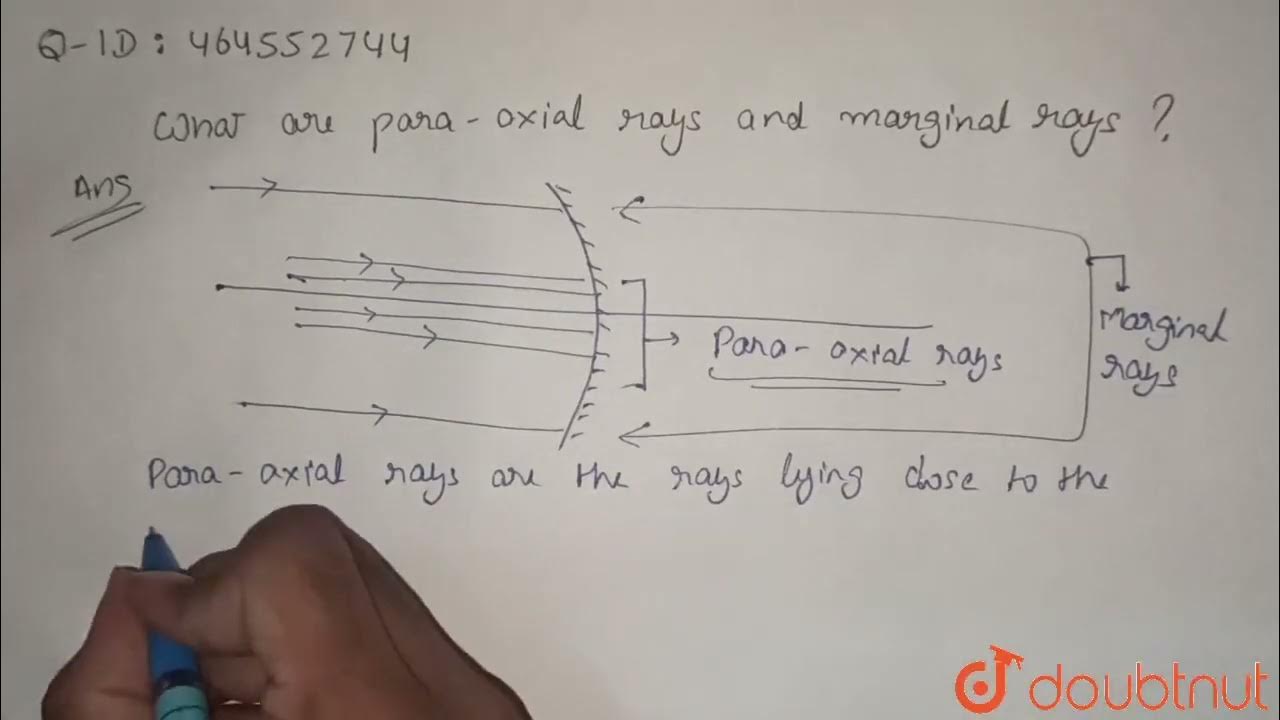 Q-ID : 464552744
What are para-axial rays and marginal rays ?
Ans
Para-axial rays
Marginal
rays
Para-axial rays are the rays lying close to the
doubtnut